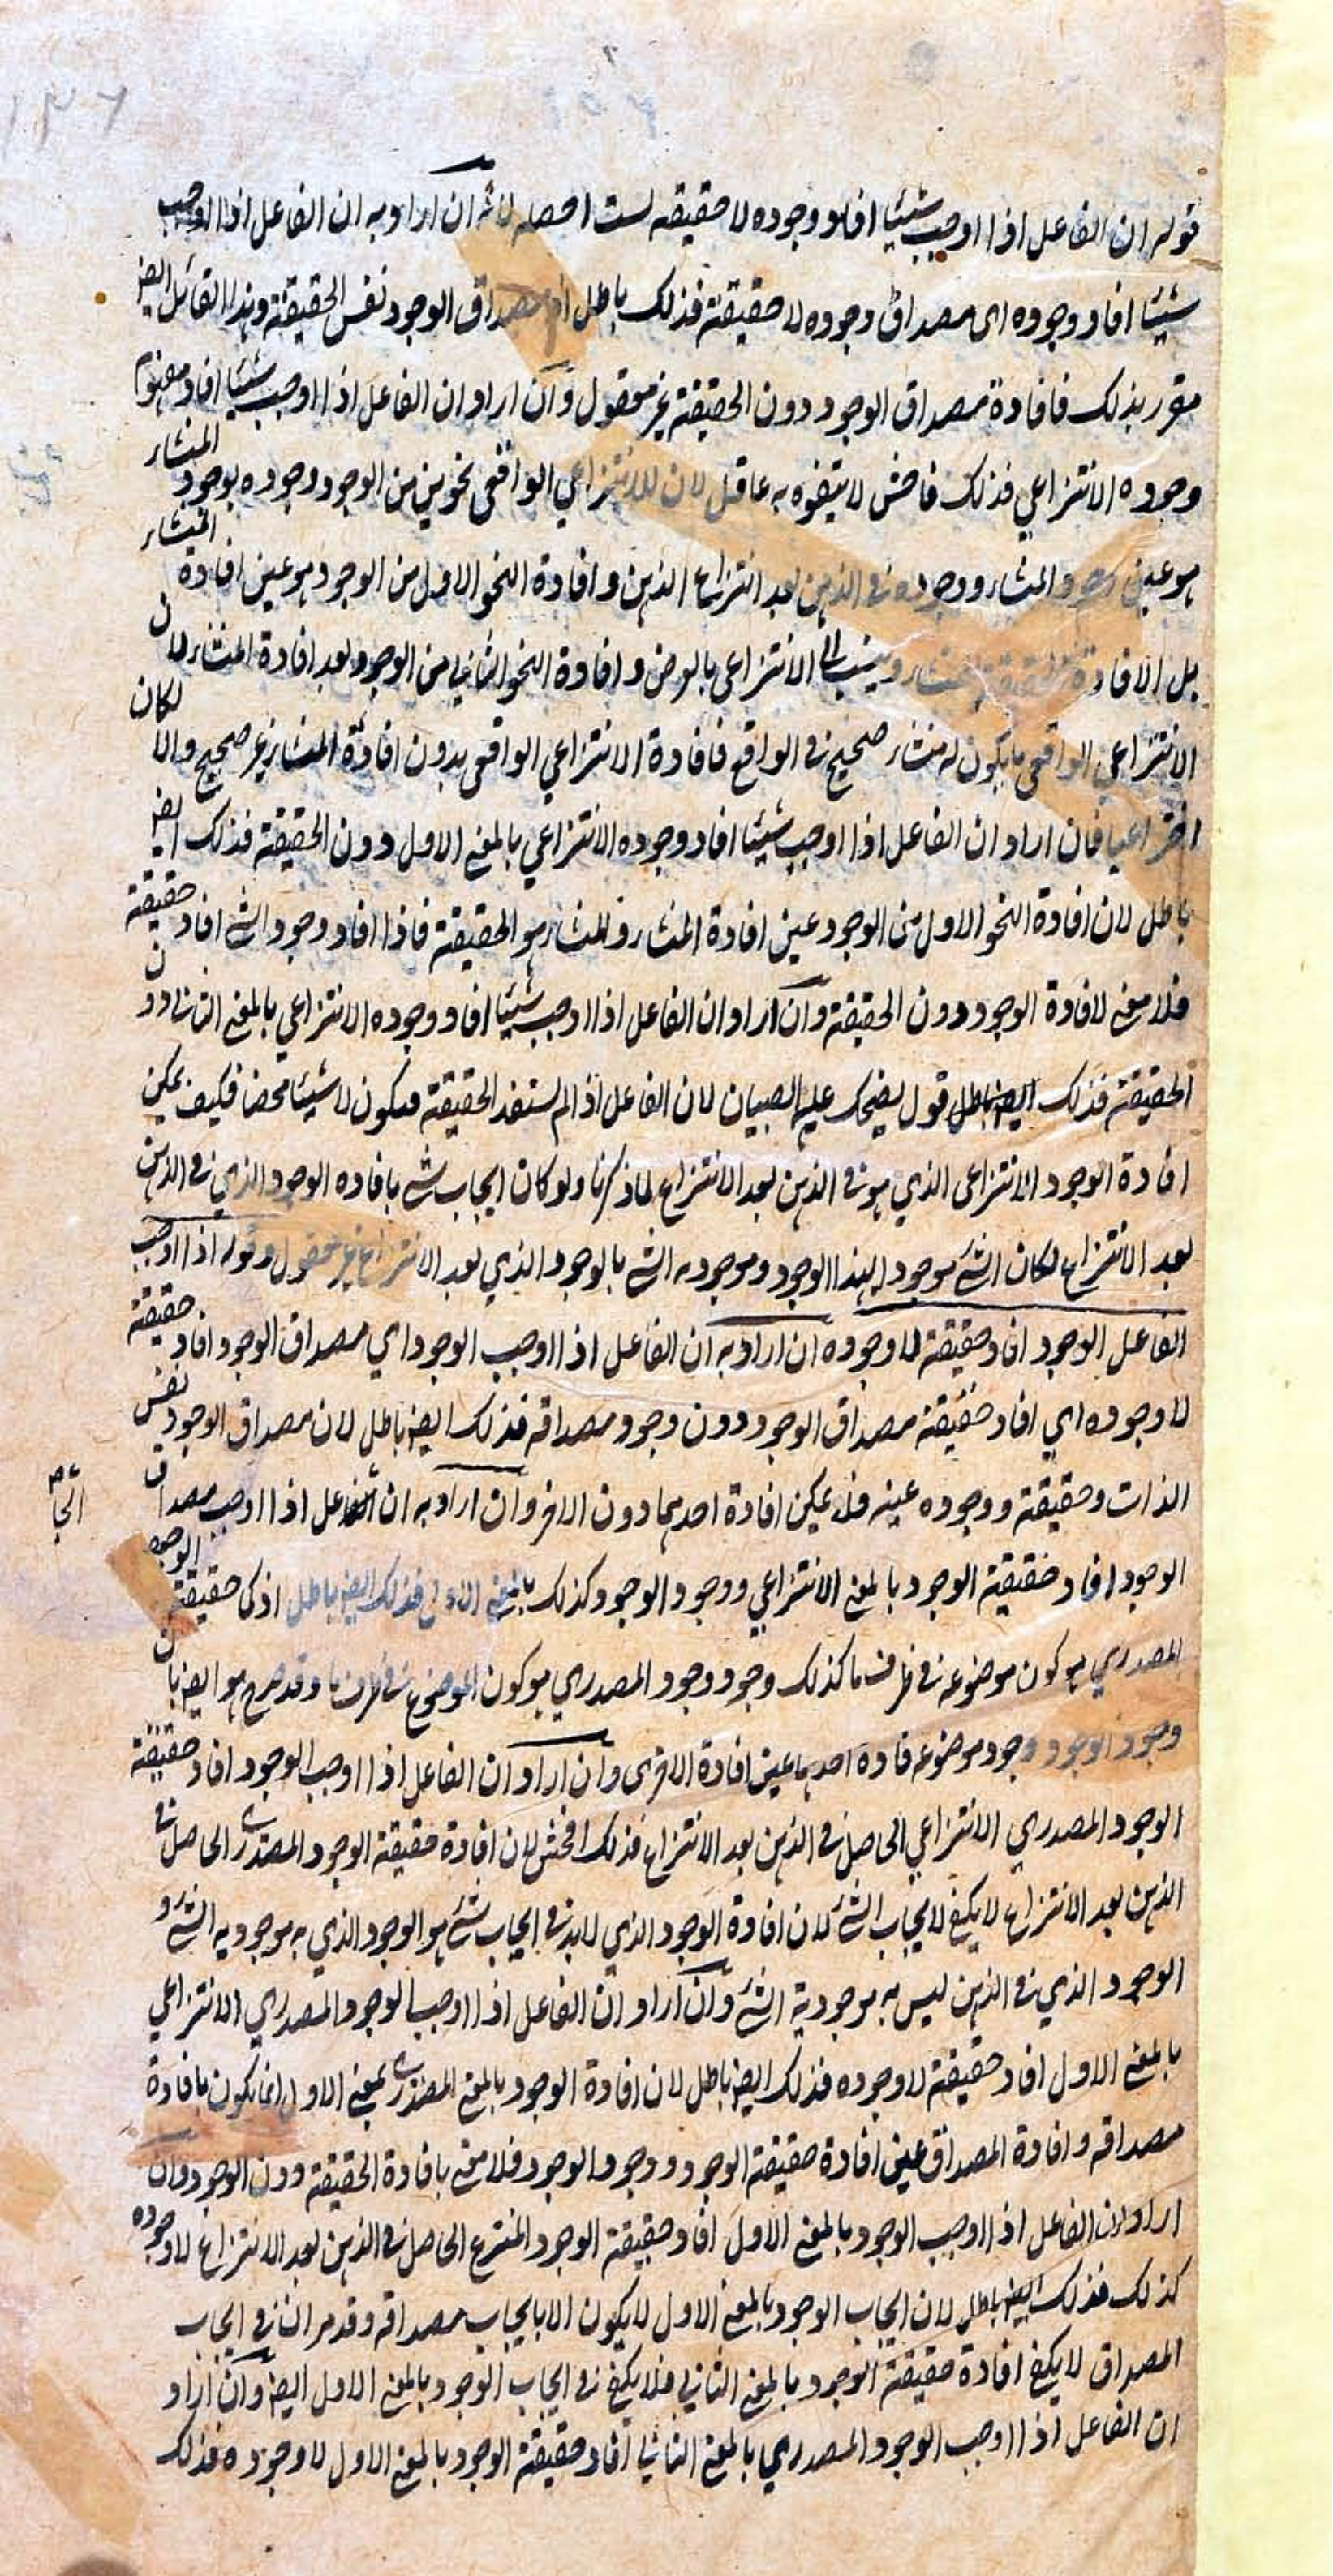 قوله ان الفاعل اذا اوجب شيئا افاد وجوده لا حقيقته لست احصله لانه ان اراد به ان الفاعل اذا اوجب
شيئا افاد وجوده اى مصداق وجوده لا حقيقته فذلك باطل اذ مصداق الوجود نفس الحقيقة وهذا القائل ايضا
مقر بذلك فافادة مصداق الوجود دون الحقيقة غير معقول وان اراد ان الفاعل اذا اوجب شيئا افاد مفهوم
وجوده الانتزاعي فذلك فاحش لا يتفوه به عاقل لان للانتزاعي الواقعى نحوين من الوجود وجوده بوجود المنشاء
هو عين وجود المنشاء ووجوده فى الذهن بعد انتزاع الذهن وافادة النحو الاول من الوجود هو عين افادة المنشاء
بل الافادة المنشاء وينسب الى الانتزاعى بالعرض وافادة النحو الثاني من الوجود بعد افادة المنشاء لان
الانتزاعى الواقعى ما يكون له منشاء صحيح فى الواقع فافادة الانتزاعي الواقعى بدون افادة المنشاء غير صحيح والا لكان
اختراعيا فان اراد ان الفاعل اذا اوجب شيئا افاد وجوده الانتزاعي بالمعنى الاول دون الحقيقة فذلك ايضا
باطل لان افادة النحو الاول من الوجود عين افادة المنشاء والمنشاء هو الحقيقة فاذا افاد وجود الشئ افاد حقيقته
فلا معنى لافادة الوجود دون الحقيقة وان اراد ان الفاعل اذا اوجب شيئا افاد وجوده الانتزاعي بالمعنى الثانى دون
الحقيقة فذلك ايضا باطل قول يضحك عليه الصبيان لان الفاعل اذا لم يستفد الحقيقة فيكون لا شيئا محضا فكيف يمكن
افادة الوجود الانتزاعى الذي هو فى الذهن بعد الانتزاع لما ذكرنا ولو كان ايجاب شئ بافاده الوجود الذي فى الذهن
بعد الانتزاع لكان الشئ موجودا بهذا الوجود وموجودية الشئ بالوجود الذي بعد الانتزاع غير معقول وقوله اذا اوجب
الفاعل الوجود افاد حقيقته لا وجوده ان اراد به ان الفاعل اذا اوجب الوجود اي مصداق الوجود افاد حقيقته
لا وجوده اي افاد حقيقة مصداق الوجود دون وجود مصداقه فذلك ايضا باطل لان مصداق الوجود نفس
الذات وحقيقته ووجوده عينه فلا يمكن افادة احدهما دون الاخر وان اراد به ان الفاعل اذا اوجب مصداق
الوجود افاد حقيقة الوجود بالمعنى الانتزاعي ووجود الوجود كذلك بالمعنى الاول فذلك ايضا باطل اذ كما حقيقة الوجود
المصدري هو كون موضوعه فى ظرف ما كذلك وجود وجود المصدري هو كون الموضوع فى ظرف ما وقد صرح هو ايضا بان
وجود الوجود وجود موضوعه فافادة احدهما عين افادة الاخرى وان اراد ان الفاعل اذا اوجب الوجود افاد حقيقة
الوجود المصدري الانتزاعي الحاصل فى الذهن بعد الانتزاع فذلك افحش لان افادة حقيقة الوجود المصدرى الحاصل فى
الذهن بعد الانتزاع لا يكفى لايجاب الشئ لان افادة الوجود الذي لابد فى ايجاب شئ هو الوجود الذي به موجودية الشئ و
الوجود الذي فى الذهن ليس به موجودية الشئ وان اراد ان الفاعل اذا اوجب الوجود المصدري الانتزاعي
بالمعنى الاول افاد حقيقته لا وجوده فذلك ايضا باطل لان افادة الوجود بالمعنى المصدرى بمعنى الاول انما يكون بافادة
مصداقه وافادة المصداق عين افادة حقيقة الوجود ووجود الوجود فلا معنى بافادة الحقيقة دون الوجود وان
اراد ان الفاعل اذا اوجب الوجود بالمعنى الاول افاد حقيقة الوجود المنتزع الحاصل فى الذهن بعد الانتزاع لا وجوده
كذلك فذلك ايضا باطل لان ايجاب الوجود بالمعنى الاول لا يكون الا بايجاب مصداقه وقد مر ان فى ايجاب
المصداق لا يكفى افادة حقيقة الوجود بالمعنى الثاني فلا يكفى فى ايجاب الوجود بالمعنى الاول ايضا وان اراد
ان الفاعل اذا اوجب الوجود المصدري بالمعنى الثاني افاد حقيقة الوجود بالمعنى الاول لا وجوده فذلك